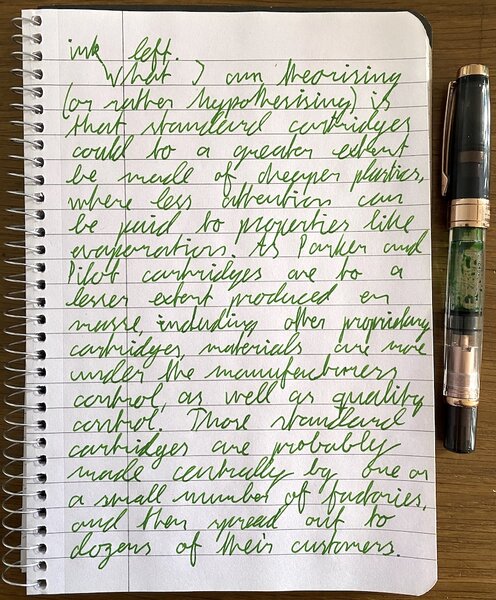 ink left.
What I am theorising
(or rather hypothesising) is
that standard cartridges
could to a greater extent
be made of cheaper plastics,
where less attention can
be paid to properties like
evaporation. As Parker and
Pilot cartridges are to a
lesser extent produced en
masse, including other propriatary
cartridges, materials are more
under the manufacturers
control, as well as quality
control. Those standard
cartridges are probably
made centrally by one or
a small number of factories,
and then spread out to
dozens of their customers.